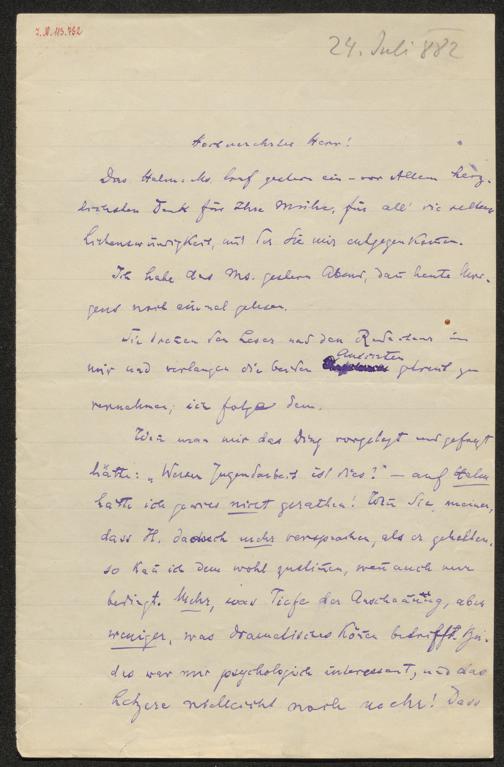 J.N. 115.762
24. Juli 882
Hochverehrter Herr!
Das Halm-Ms. traf gestern ein – vor Allem herz-
lichsten Dank für Ihre Mühe, für all' die seltene
Liebenswürdigkeit, mit der Sie mir entgegenkom̄en.
Ich habe das Ms. gestern Abend, dan̄ heute Mor-
gens noch einmal gelesen.
Sie trennen den Leser und den Redacteur in
mir und verlangen die beiden Ansichten getrennt zu
vernehmen; ich folge dem.
Wen̄ man mir das Ding vorgelegt und gefragt
hätte: „Wessen Jugendarbeit ist dies?" – auf Halm
hätte ich gewiss nicht gerathen! Wen̄ Sie meinen,
dass H. danach mehr versprochen, als er gehalten,
so kan̄ ich dem wohl zustim̄en, wen̄ auch nur
bedingt. Mehr, was Tiefe der Anschauung, aber
weniger, was dramatisches Kön̄en betrifft. Bei-
des war mir psychologisch interessant, und das
Letztere vielleicht noch mehr! Dass